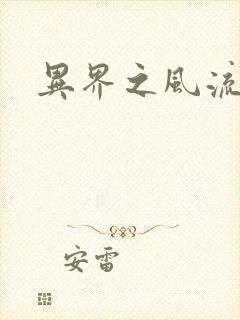 異界之風流
安雷